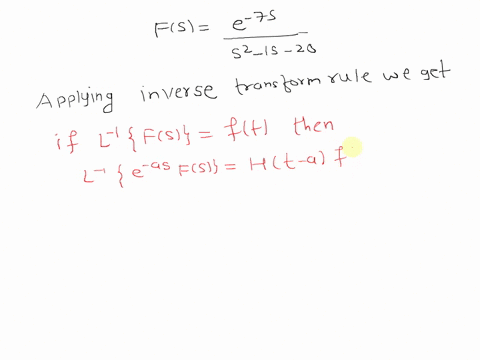 F(s) = e^{-7s} / s^2-1s-20
Applying inverse transform rule we get
if L^{-1} { F(s) } = f(t) then
L^{-1} { e^{-as} F(s) } = H(t-a) f